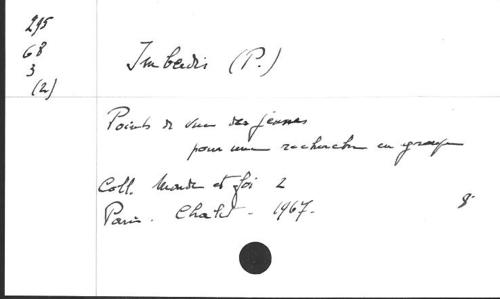 295
68
3
(2)
Imberdis (P.)
Points de vue des jeunes
pour une recherche en groupe
Coll. Monde et foi 2
Paris. Chalet - 1967.
8°